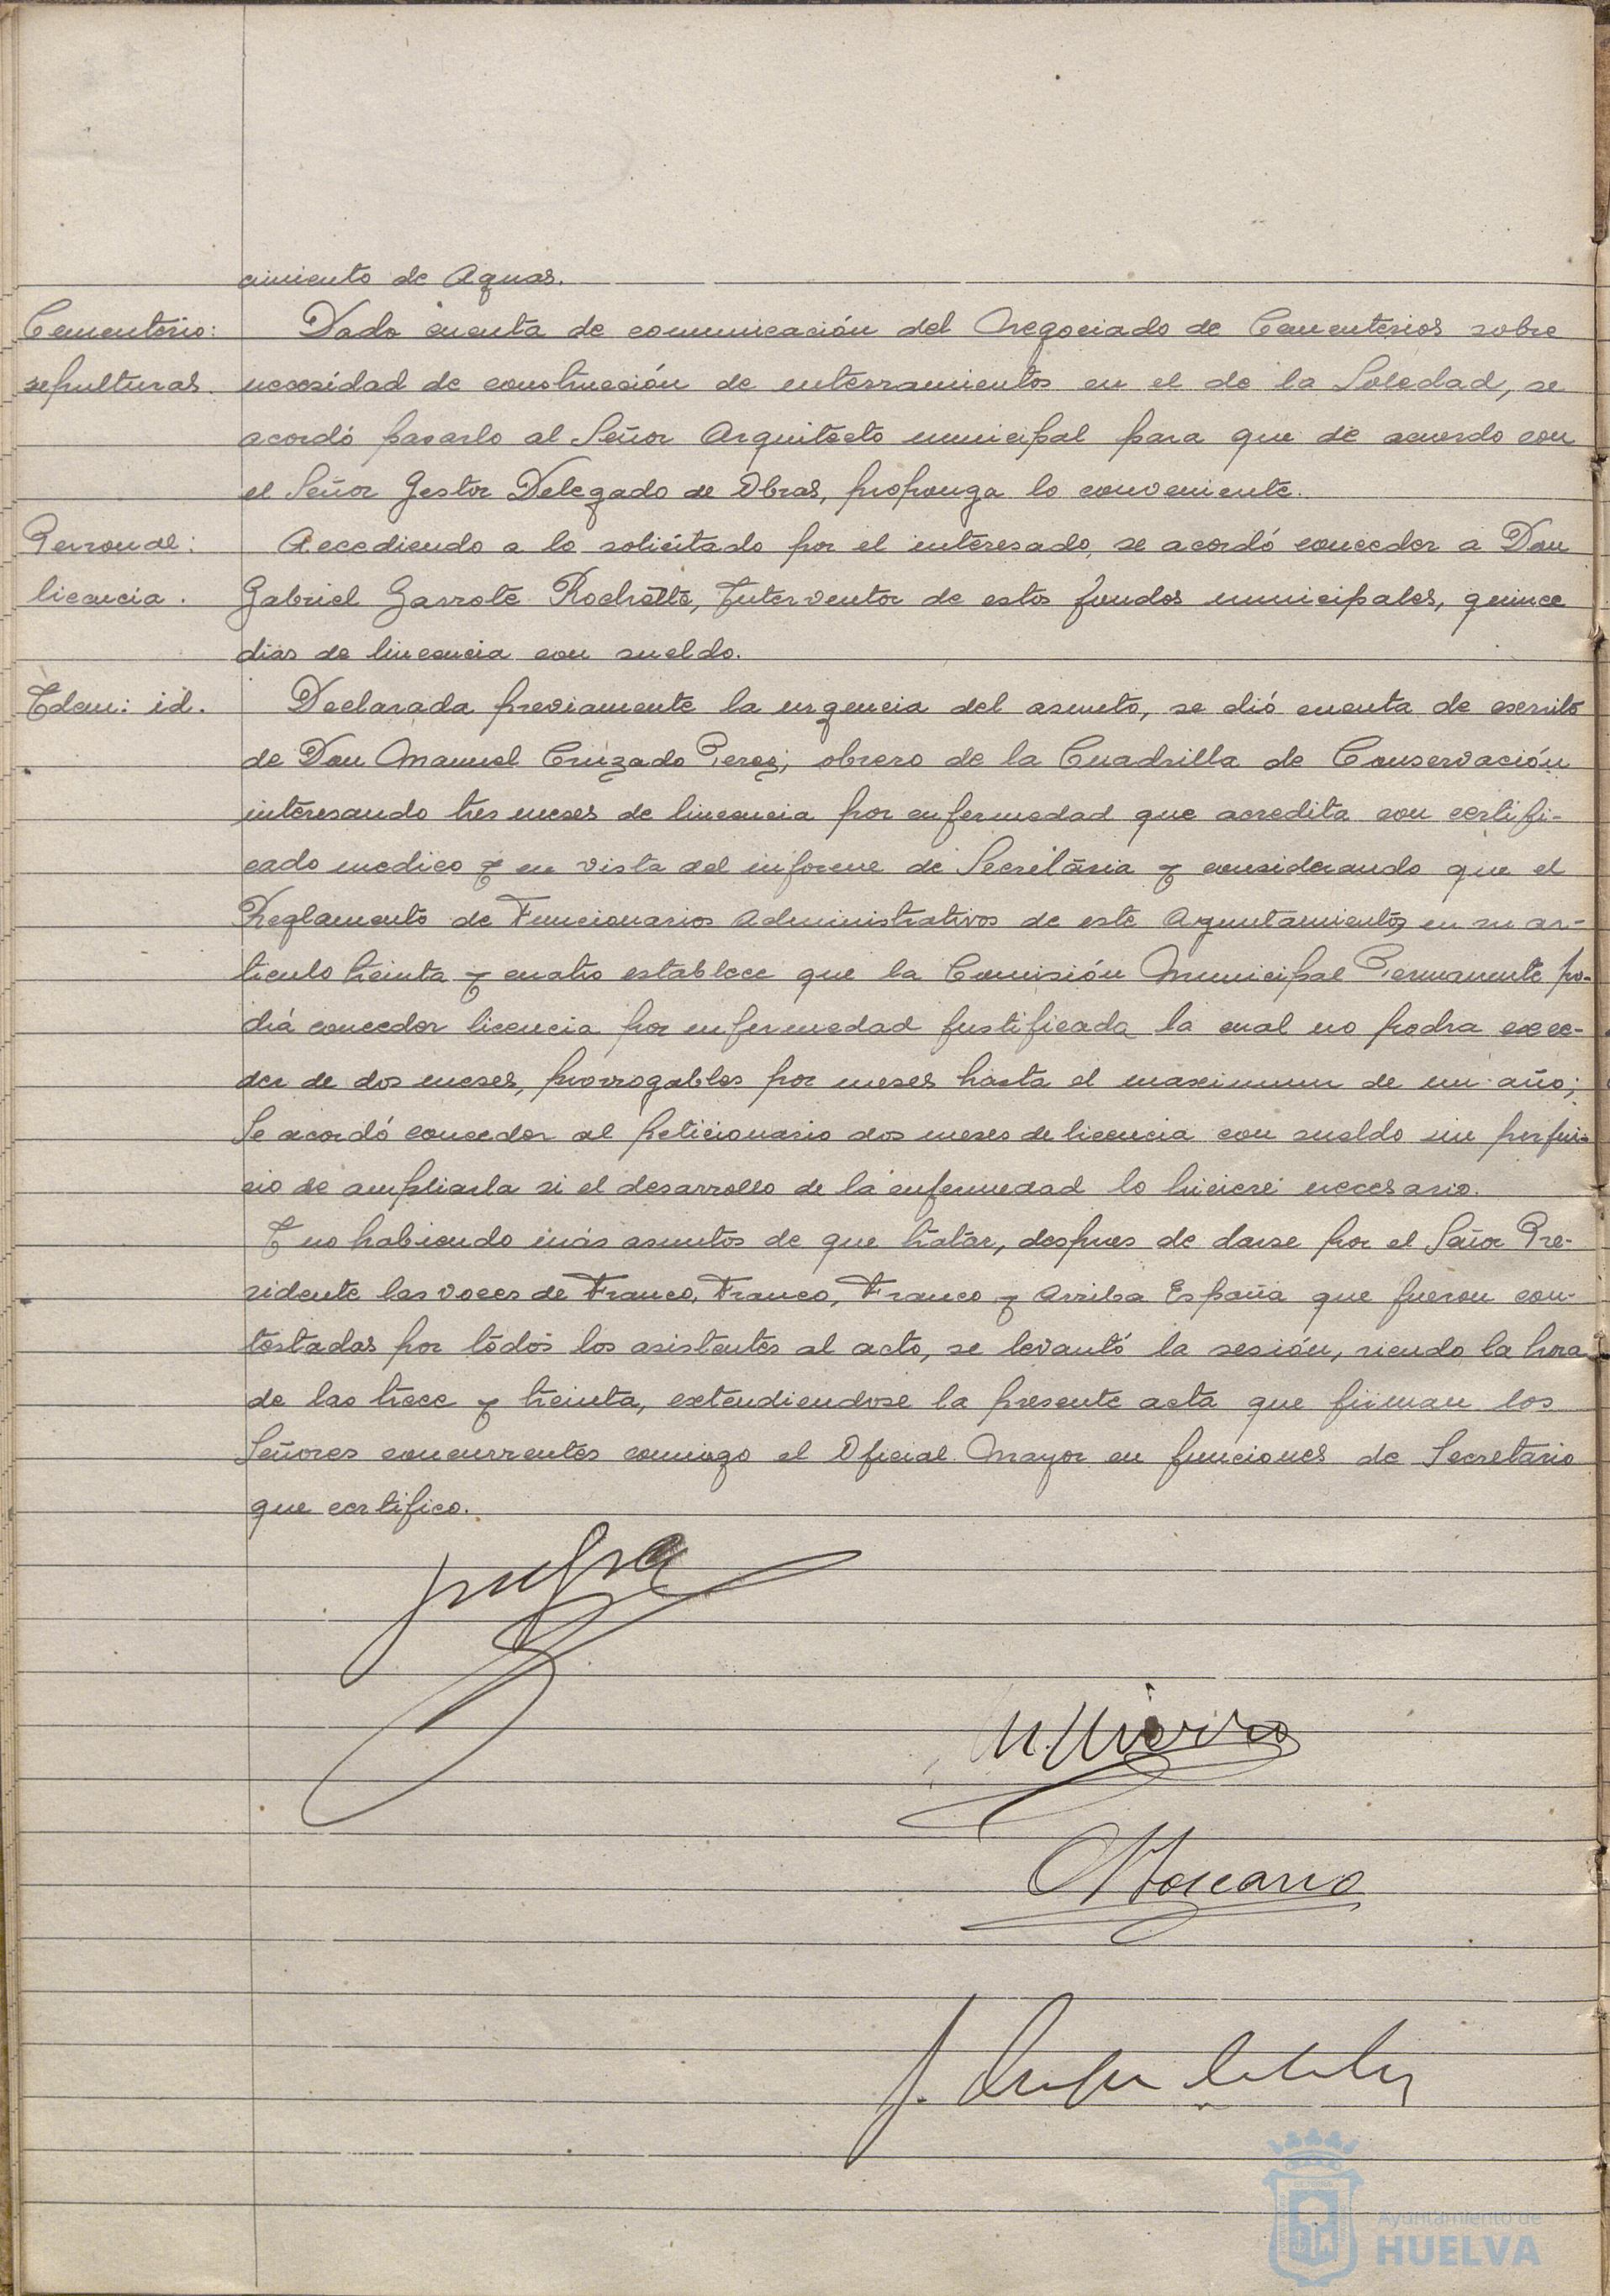 cimiento de Aguas.
Cementerio: Dada cuenta de comunicación del Negociado de Cementerios sobre
sepulturas. necesidad de construcción de enterramientos en el de la Soledad, se
acordó pasarlo al Señor Arquitecto municipal para que de acuerdo con
el Señor Gestor Delegado de Obras, proponga lo conveniente.
Personal: Accediendo a lo solicitado por el interesado, se acordó conceder a Don
licencia. Gabriel Garrote Rochette, Interventor de estos fondos municipales, quince
dias de lincencia con sueldo.
Idem: id. Declarada previamente la urgencia del asunto, se dió cuenta de escrito
de Don Manuel Cruzado Perez, obrero de la Cuadrilla de Conservación
interesando tres meses de lincencia por enfermedad que acredita con certifi-
cado medico y en vista del informe de Secretaria y considerando que el
Reglamento de Funcionarios Administrativos de este Ayuntamiento, en su ar-
ticulo treinta y cuatro establece que la Comisión Municipal Permanente po-
drá conceder licencia por enfermedad justificada la cual no podra exce-
der de dos meses, prorrogables por meses hasta el maximum de un año;
Se acordó conceder al peticionario dos meses de licencia con sueldo sin perjui-
cio de ampliarla si el desarrollo de la enfermedad lo hiciere necesario.
Y no habiendo más asuntos de que tratar, despues de darse por el Señor Pre-
sidente las voces de Franco, Franco, Franco y Arriba España que fueron con-
testadas por todos los asistentes al acto, se levantó la sesión, siendo la hora
de las trece y treinta, extendiendose la presente acta que firman los
Señores concurrentes conmigo el Oficial Mayor en funciones de Secretario
que certifico.
Ayuntamiento de
HUELVA